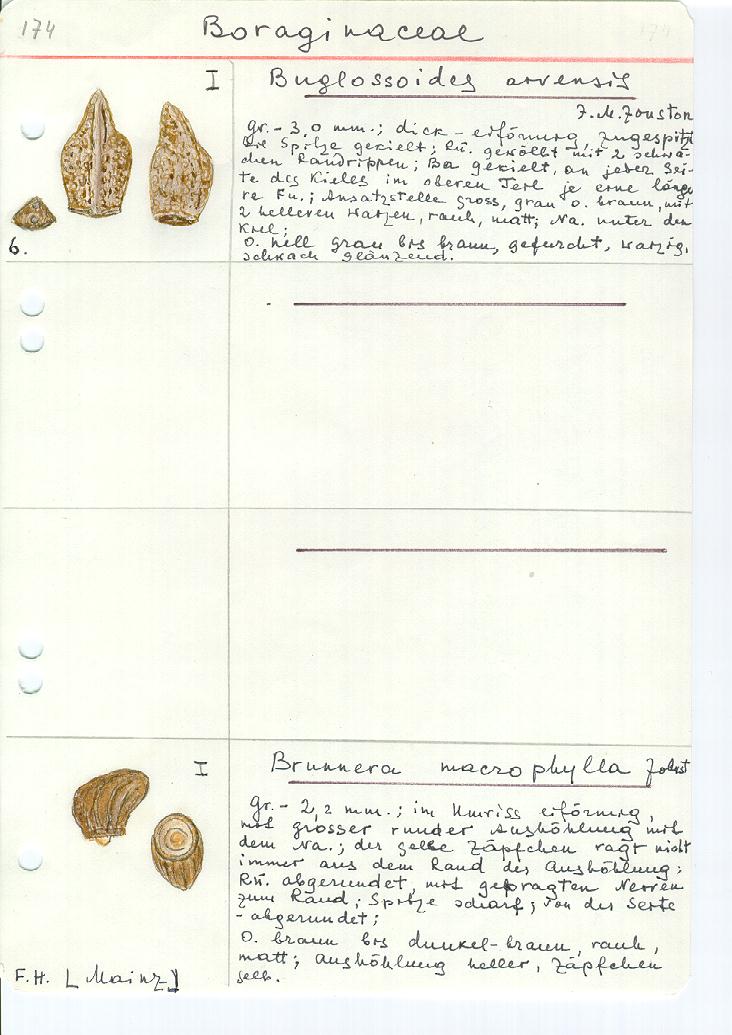 174
Boraginaceae
174
I
Buglossoides arvensis
J. M. Jonston
Gr. - 3,0 mm.; dick - eiförmig, zugespitzt
Die Spitze gekielt; Rü. gewölbt mit 2 schwä-
chen Randrippen; Ba gekielt, an jeder Sei-
te des Kieles im oberen Teil je eine länge
re Fu.; Ansatzstelle gross, grau o. braun, mit
2 helleren Warzen, rauh, matt; Na. unter dem
Kiel;
O. hell grau bis braun, gefurcht, warzig,
schwach glänzend.
6.
I
Brunnera macrophylla Johst
Gr. - 2,2 mm.; im Umriss eiförmig,
mit grosser runder Aushöhlung mit
dem Na.; der gelbe Zäpfchen ragt nicht
immer aus dem Rand der Aushöhlung;
Rü. abgerundet, mit gepragten Nerven
zum Rand; Spitze scharf; von der Seite
- abgerundet;
O. braun bis dunkel-braun, rauh,
matt; Aushöhlung heller, Zäpfchen
gelb.
F.H. [Mainz]